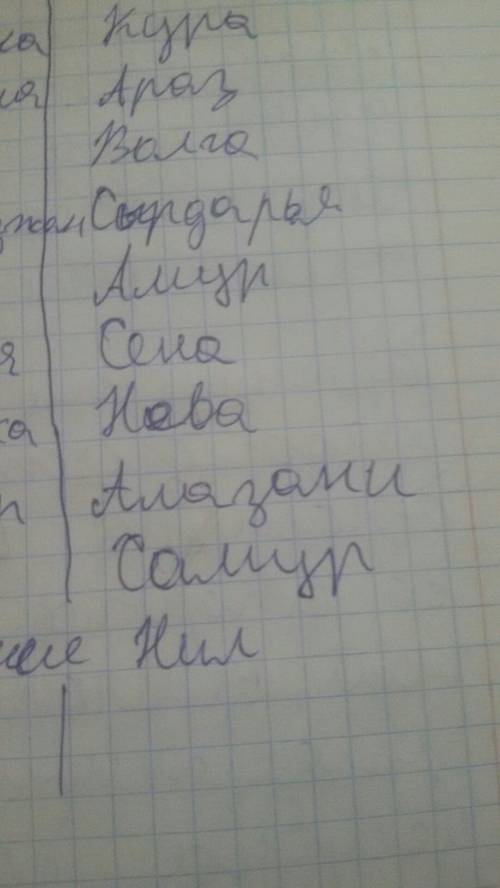 ка Кура
Араз
Волга
Сырдарья
Амур
я Сена
ка Нева
п Амазани
Самур
Нил